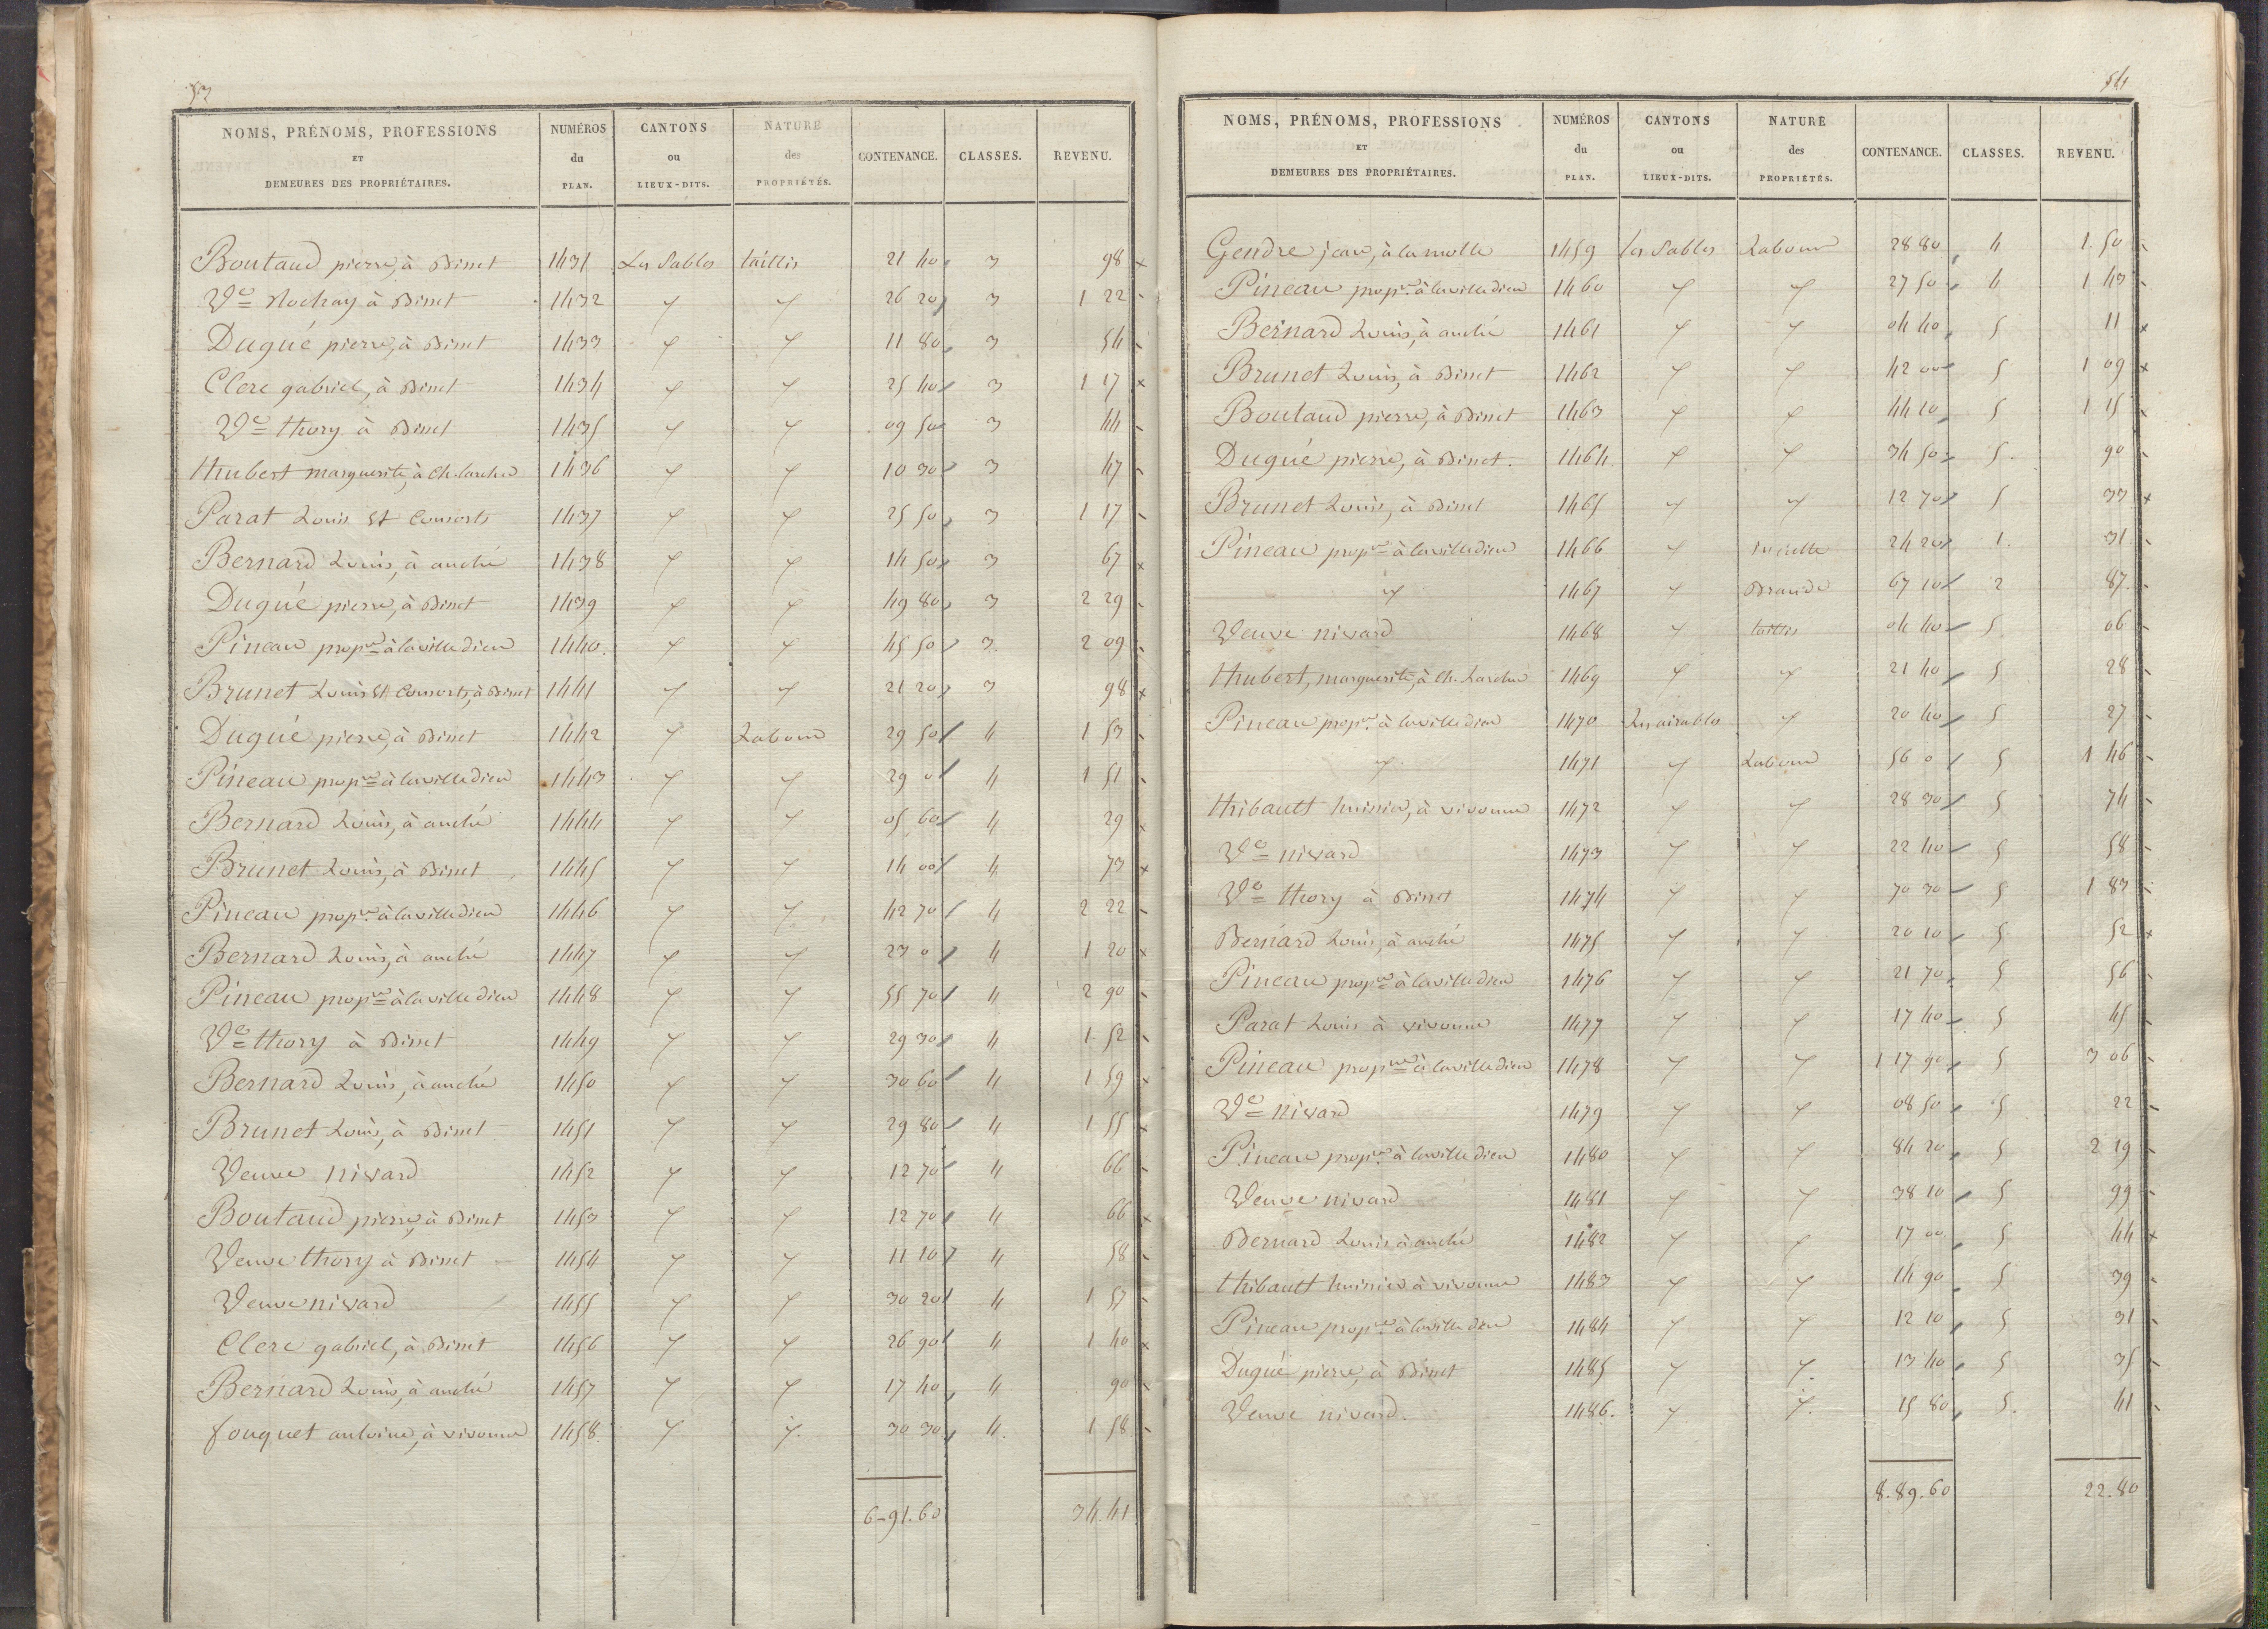 53
NOMS, PRÉNOMS, PROFESSIONS ET DEMEURES DES PROPRIÉTAIRES. NUMÉROS du PLAN. CANTONS ou LIEUX-DITS. NATURE des PROPRIÉTÉS. CONTENANCE. CLASSES. REVENU.
Boutaud pierre, à Binet 1431 Les Sables taillis 21 40 3 98
Ve Rochay à Binet 1432 " " 26 20 3 1 22
Dugué pierre, à Binet 1433 " " 11 80 3 54
Clerc gabriel, à Binet 1434 " " 25 40 3 1 17
Ve thory à Binet 1435 " " 09 50 3 44
hubert marguerite, à Ch. larcher 1436 " " 10 30 3 47
Parat Louis et Consorts 1437 " " 25 50 3 1 17
Bernard Louis, à anché 1438 " " 14 50 3 67
Dugué pierre, à Binet 1439 " " 49 80 3 2 29
Pineau propre à lavilledieu 1440 " " 45 50 3 2 09
Brunet Louis et Consorts, à Binet 1441 " " 21 20 3 98
Dugué pierre, à Binet 1442 " Labour 29 50 4 1 53
Pineau propre à lavilledieu 1443 " " 29 0 4 1 51
Bernard Louis, à anché 1444 " " 05 60 4 29
Brunet Louis, à Binet 1445 " " 14 00 4 73
Pineau propre à lavilledieu 1446 " " 42 70 4 2 22
Bernard Louis, à anché 1447 " " 23 0 4 1 20
Pineau propre à lavilledieu 1448 " " 55 70 4 2 90
Ve thory à Binet 1449 " " 29 30 4 1 52
Bernard Louis, à anché 1450 " " 30 60 4 1 59
Brunet Louis, à Binet 1451 " " 29 80 4 1 55
Veuve nivard 1452 " " 12 70 4 66
Boutaud pierre, à Binet 1453 " " 12 70 4 66
Veuve thory à Binet 1454 " " 11 10 4 58
Veuve nivard 1455 " " 30 20 4 1 57
Clerc gabriel, à Binet 1456 " " 26 90 4 1 40
Bernard Louis, à anché 1457 " " 17 40 4 90
fouquet antoine, à vivonne 1458 " " 30 30 4 1 58
6-91.60 34.41
54
NOMS, PRÉNOMS, PROFESSIONS ET DEMEURES DES PROPRIÉTAIRES. NUMÉROS du PLAN. CANTONS ou LIEUX-DITS. NATURE des PROPRIÉTÉS. CONTENANCE. CLASSES. REVENU.
Gendre jean, à la motte 1459 les Sables Labour 28 80 4 1 50
Pineau propre à lavilledieu 1460 " " 27 50 4 1 43
Bernard Louis, à anché 1461 " " 04 40 5 11
Brunet Louis, à Binet 1462 " " 42 00 5 1 09
Boutaud pierre, à Binet 1463 " " 44 10 5 1 15
Dugué pierre, à Binet. 1464 " " 34 50 5 90
Brunet Louis, à Binet 1465 " " 12 70 5 33
Pineau propre à lavilledieu 1466 " 24 20 1 31
" 1467 " Brande 67 10 2 87
Veuve nivard 1468 " taillis 04 40 5 06
hubert, marguerite, à Ch. Larcher 1469 " " 21 40 5 28
Pineau propre à lavilledieu 1470 " 20 40 5 27
" 1471 " Labour 56 0 5 1 46
thibault huissier, à vivonne 1472 " " 28 30 5 74
Ve nivard 1473 " " 22 40 5 58
Ve thory à Binet 1474 " " 70 30 5 1 83
Bernard Louis, à anché 1475 " " 20 10 5 52
Pineau propre à lavilledieu 1476 " " 21 70 5 56
Parat Louis à vivonne 1477 " " 17 40 5 45
Pineau propre à lavilledieu 1478 " " 1 17 90 5 3 06
Ve nivard 1479 " " 08 50 5 22
Pineau propre à lavilledieu 1480 " " 84 20 5 2 19
Veuve nivard 1481 " " 38 10 5 99
Bernard Louis à anché 1482 " " 17 00 5 44
thibault huissier à vivonne 1483 " " 14 90 5 39
Pineau propre à lavilledieu 1484 " " 12 10 5 31
Dugué pierre, à Binet 1485 " " 13 40 5 35
Veuve nivard. 1486. " " 15 80 5. 41
8.89.60 22.80